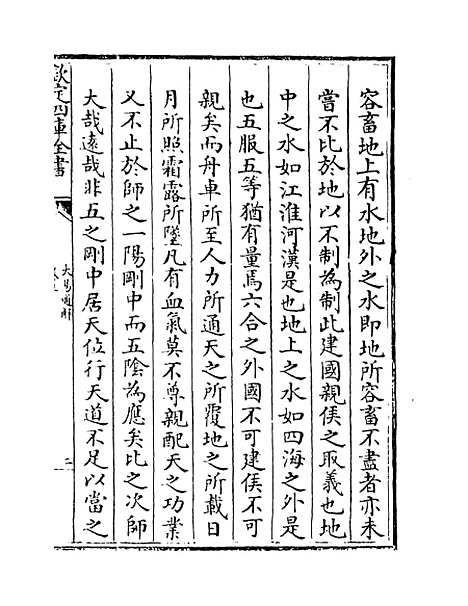 容畜地上有水地外之水即地所容畜不盡者亦未
嘗不比於地以不制為制此建國親侯之取義也地
中之水如江淮河漢是也地上之水如四海之外是
也五服五等猶有量焉六合之外國不可建侯不可
親矣而舟車所至人力所通天之所覆地之所載日
月所照霜露所墜凡有血氣莫不尊親配天之功業
又不止於師之一陽剛中而五陰為應矣比之次師
大哉遠哉非五之剛中居天位行天道不足以當之
欽定四庫全書
大易通解
二